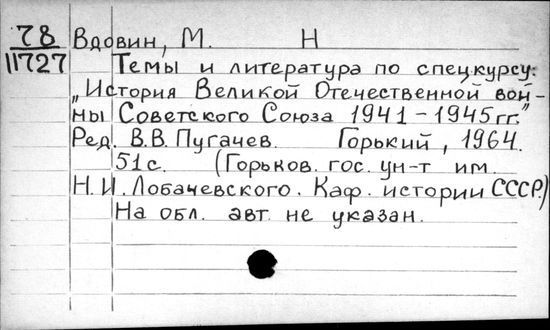 78 Вдовин, М. Н
11727 Темы и литература по спецкурсу:
„История Великой Отечественной вой-
ны Советского Союза 1941-1945гг."
Ред. В.В. Пугачев. Горький, 1964.
51с. (Горьков. гос. ун-т им.
Н.И. Лобачевского. Каф. истории СССР.)
На обл. авт. не указан.